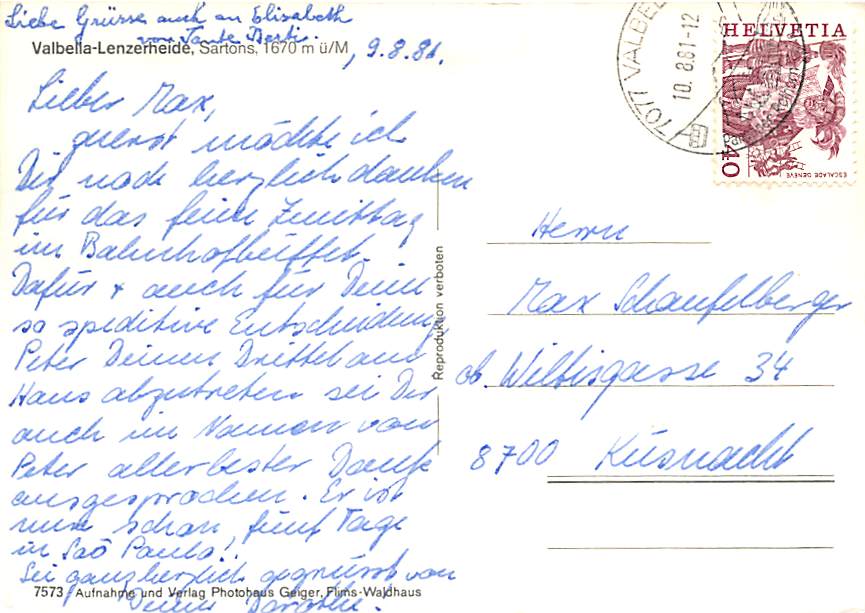 Liebe Grüsse auch an Elisabeth
von Tante Berti.
Valbella-Lenzerheide, Sartons, 1670 m ü/M
, 9.8.81.
Lieber Max,
zuerst möchte ich
Dir noch herzlich danken
für das feine Zmittag
im Bahnhofbüffet.
Dafür + auch für Deine
so speditive Entscheidung,
Peter Deinen Drittel am
Haus abzutreten sei Dir
auch im Namen von
Peter allerbester Dank
ausgesprochen. Er ist
nun schon fünf Tage
in Saõ Paulo!
Sei ganz herzlich gegrüsst von
Deine Dorothe.
7573 - Aufnahme und Verlag Photohaus Geiger, Flims-Waldhaus
Reproduktion verboten
7077 VALBEL
10.8.81-12
HELVETIA
40
ESCALADE GENEVE
Herrn
Max Schaufelberger
ob. Wiltisgasse 34
8700 Küsnacht